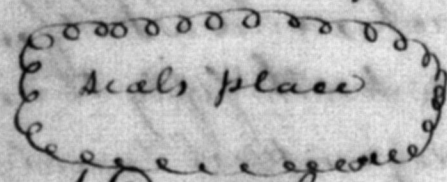 seals place